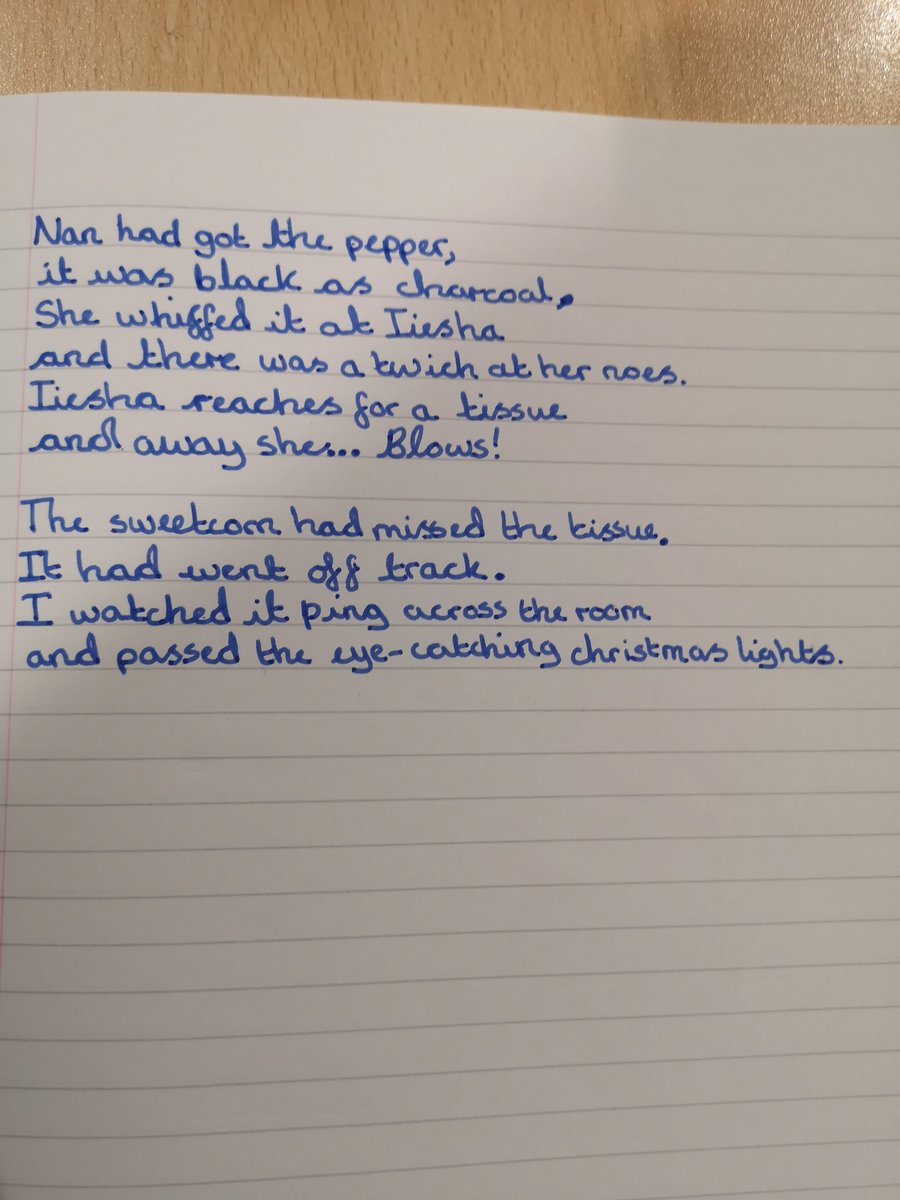 Nan had got the pepper,
it was black as charcoal,
She whiffed it at Iiesha
and there was a twich at her noes.
Iiesha reaches for a tissue
and away she... Blows!
The sweetcorn had missed the tissue.
It had went off track.
I watched it ping across the room
and passed the eye-catching christmas lights.